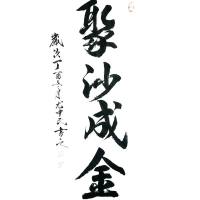 聚沙成金
歲次丁酉年